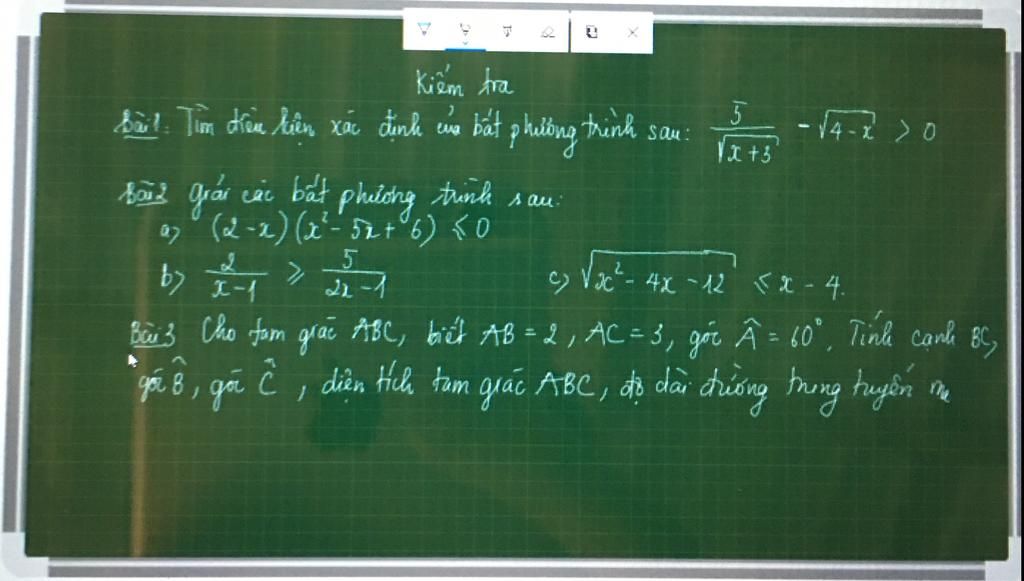 Kiểm tra
Bài 1: Tìm điều kiện xác định của bất phương trình sau: 5/√(x+3) - √(4-x) > 0
Bài 2 Giải các bất phương trình sau:
a) (2-x)(x²-5x+6) ≤ 0
b) 2/(x-1) ≥ 5/(2x-1) c) √(x²-4x-12) ≤ x-4.
Bài 3 Cho tam giác ABC, biết AB = 2, AC = 3, góc Â = 60°. Tính cạnh BC,
góc B̂, góc Ĉ, diện tích tam giác ABC, độ dài đường trung tuyến